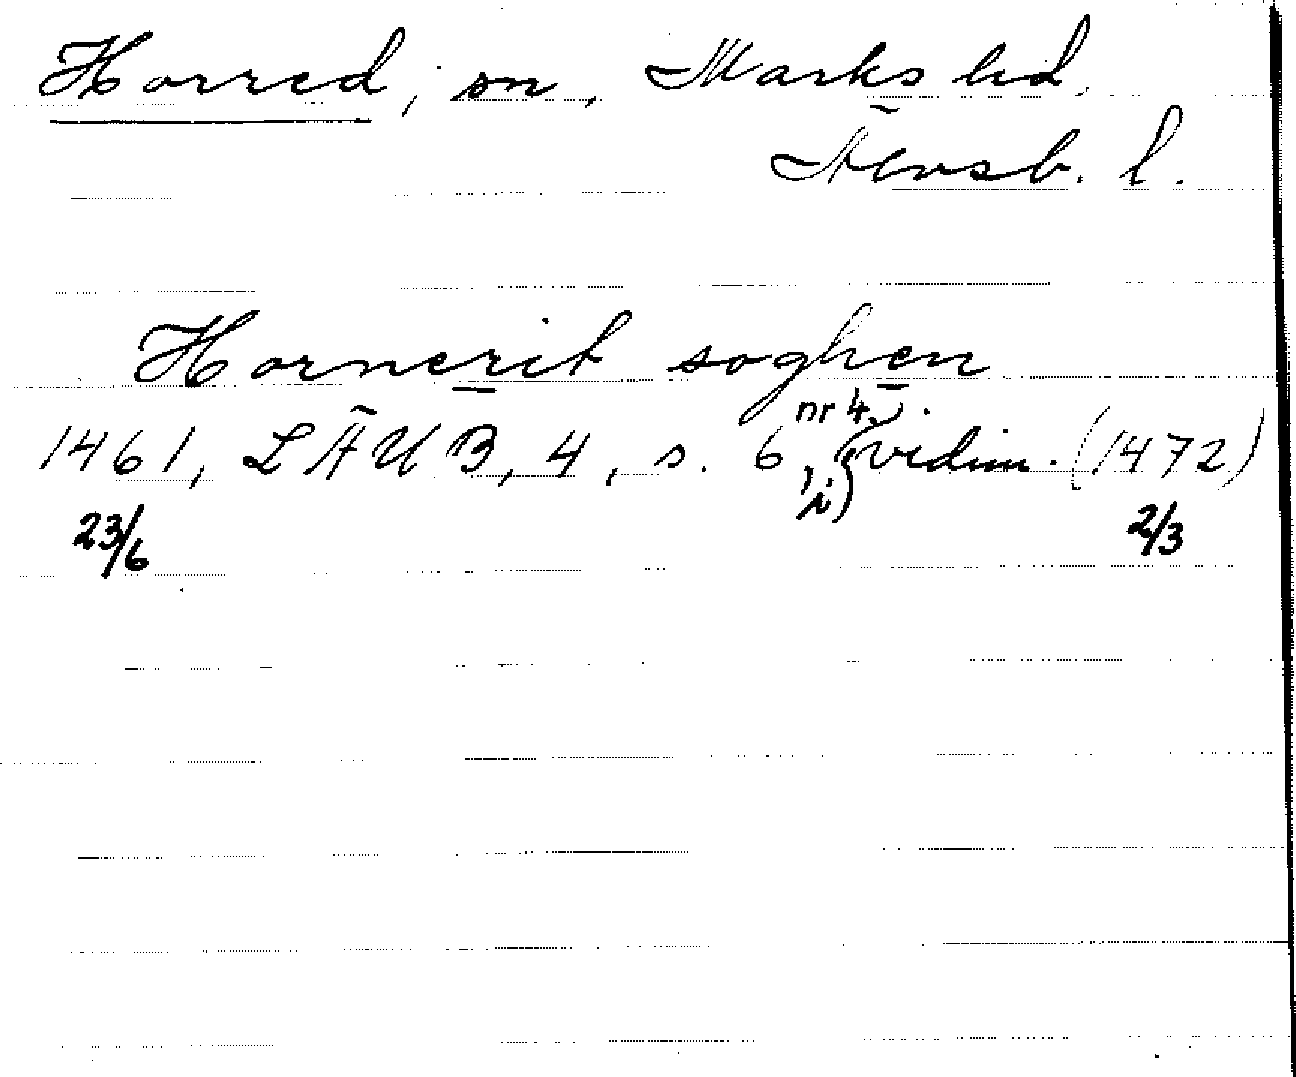 Horred, sn, Marks hd,
Älvsb. l.
Hornerit soghen
nr 4
1461, LÄUB, 4, s. 6, i vidim. (1472)
23/6 2/3